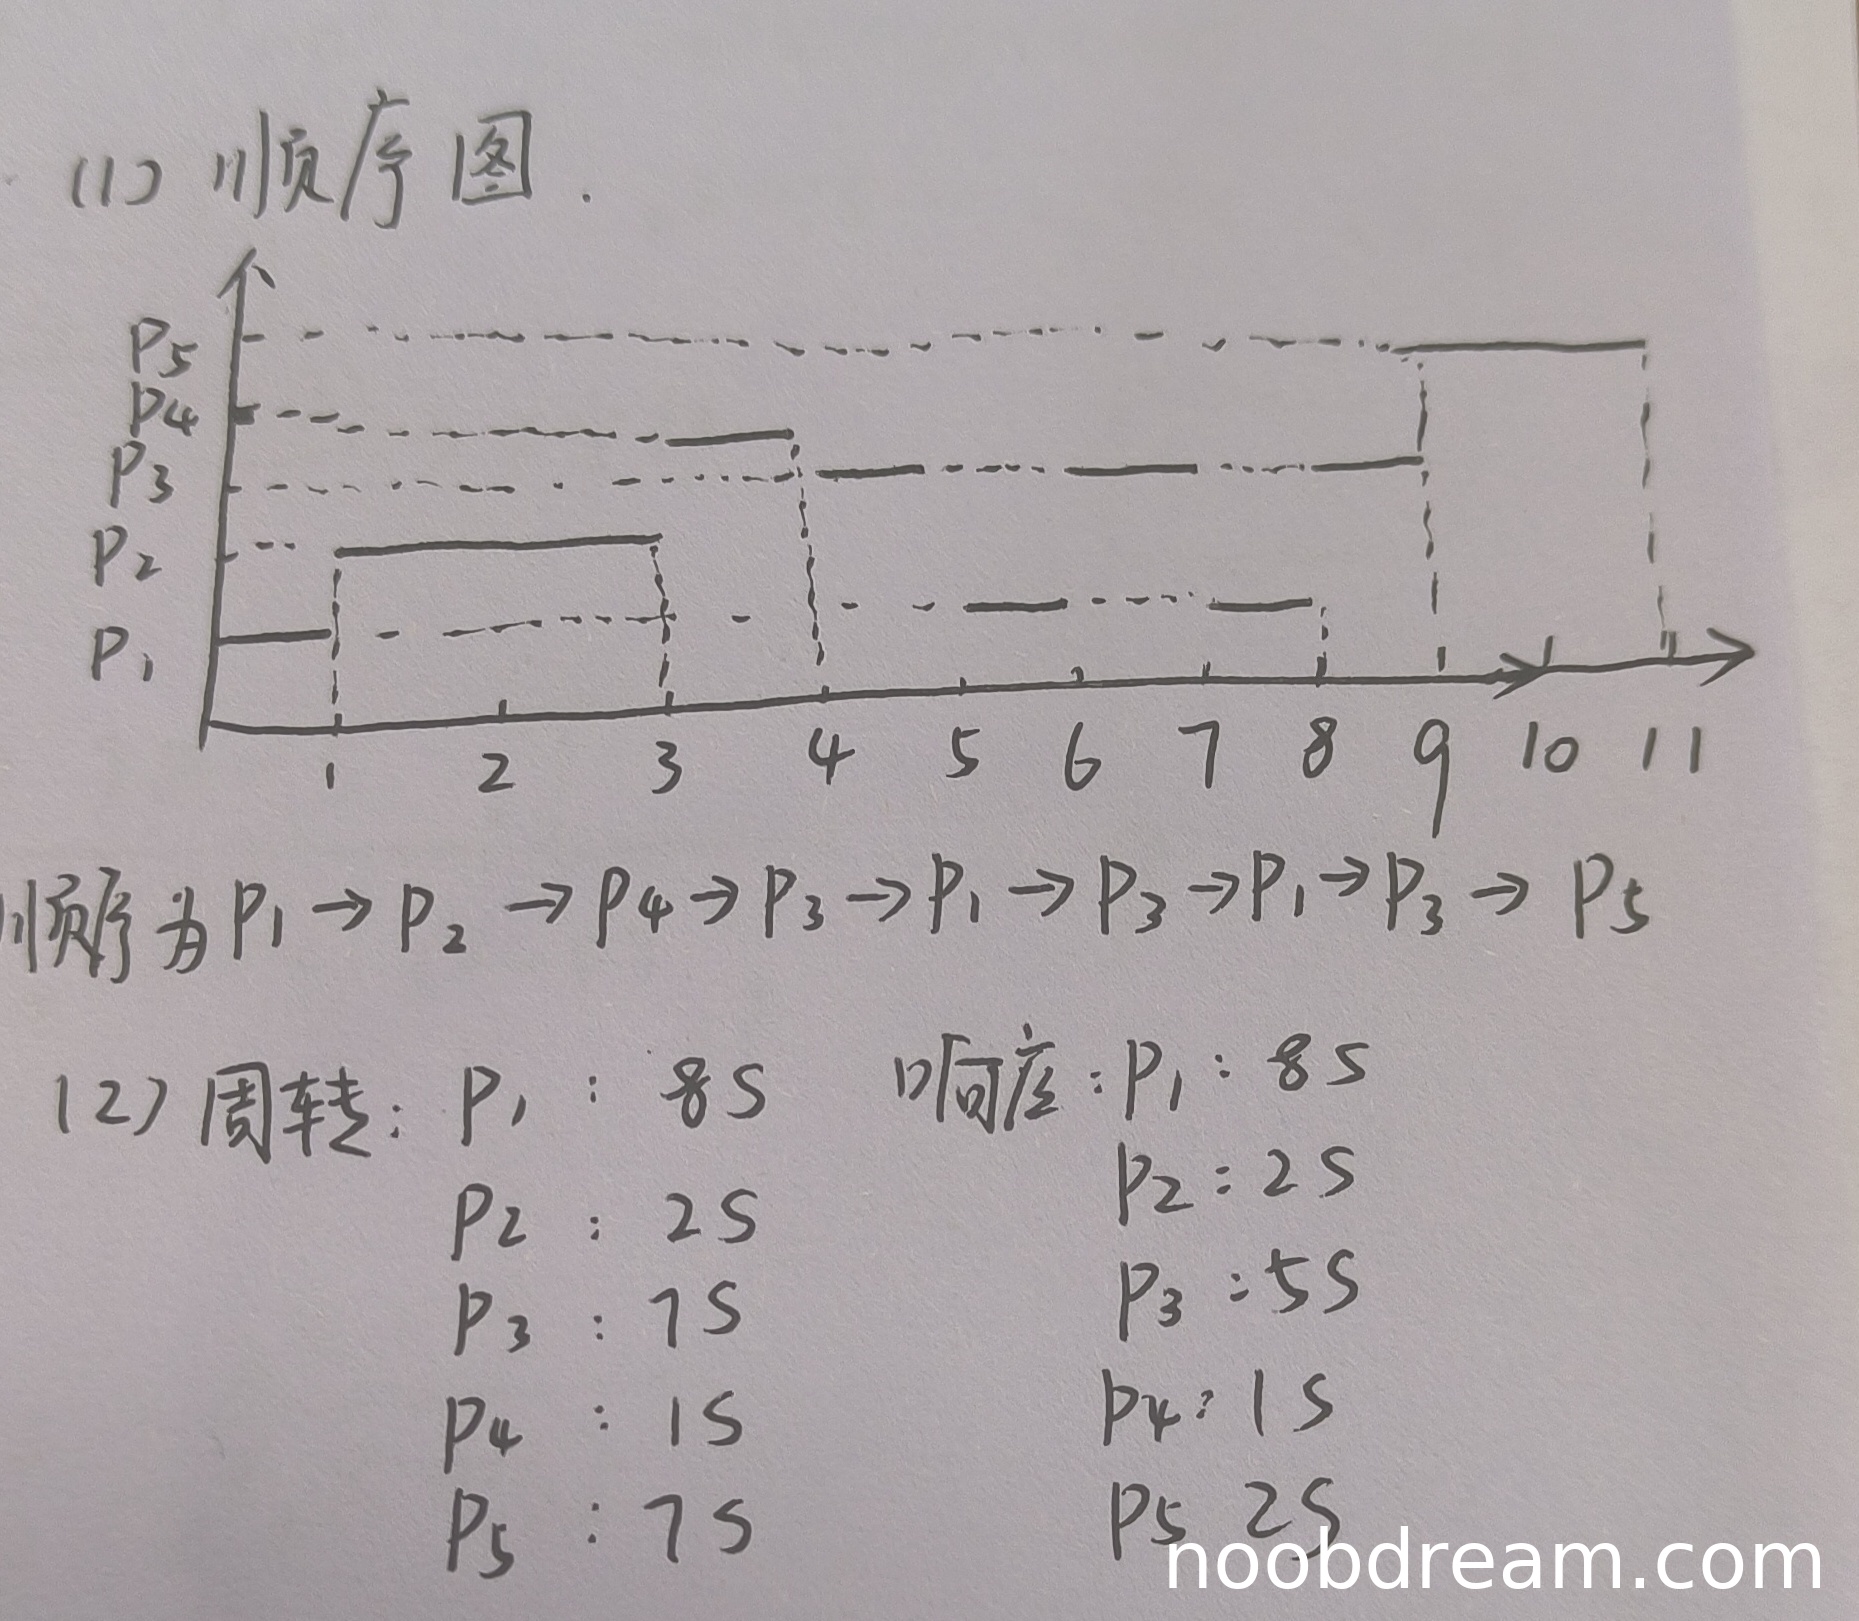 (1) 顺序图.
P5
P4
P3
P2
P1
1 2 3 4 5 6 7 8 9 10 11
顺序为 P1 → P2 → P4 → P3 → P1 → P3 → P1 → P3 → P5
(2) 周转: P1 : 8S 响应: P1 : 8S
P2 : 2S P2 : 2S
P3 : 7S P3 : 5S
P4 : 1S P4 : 1S
P5 : 7S P5 2S
noobdream.com